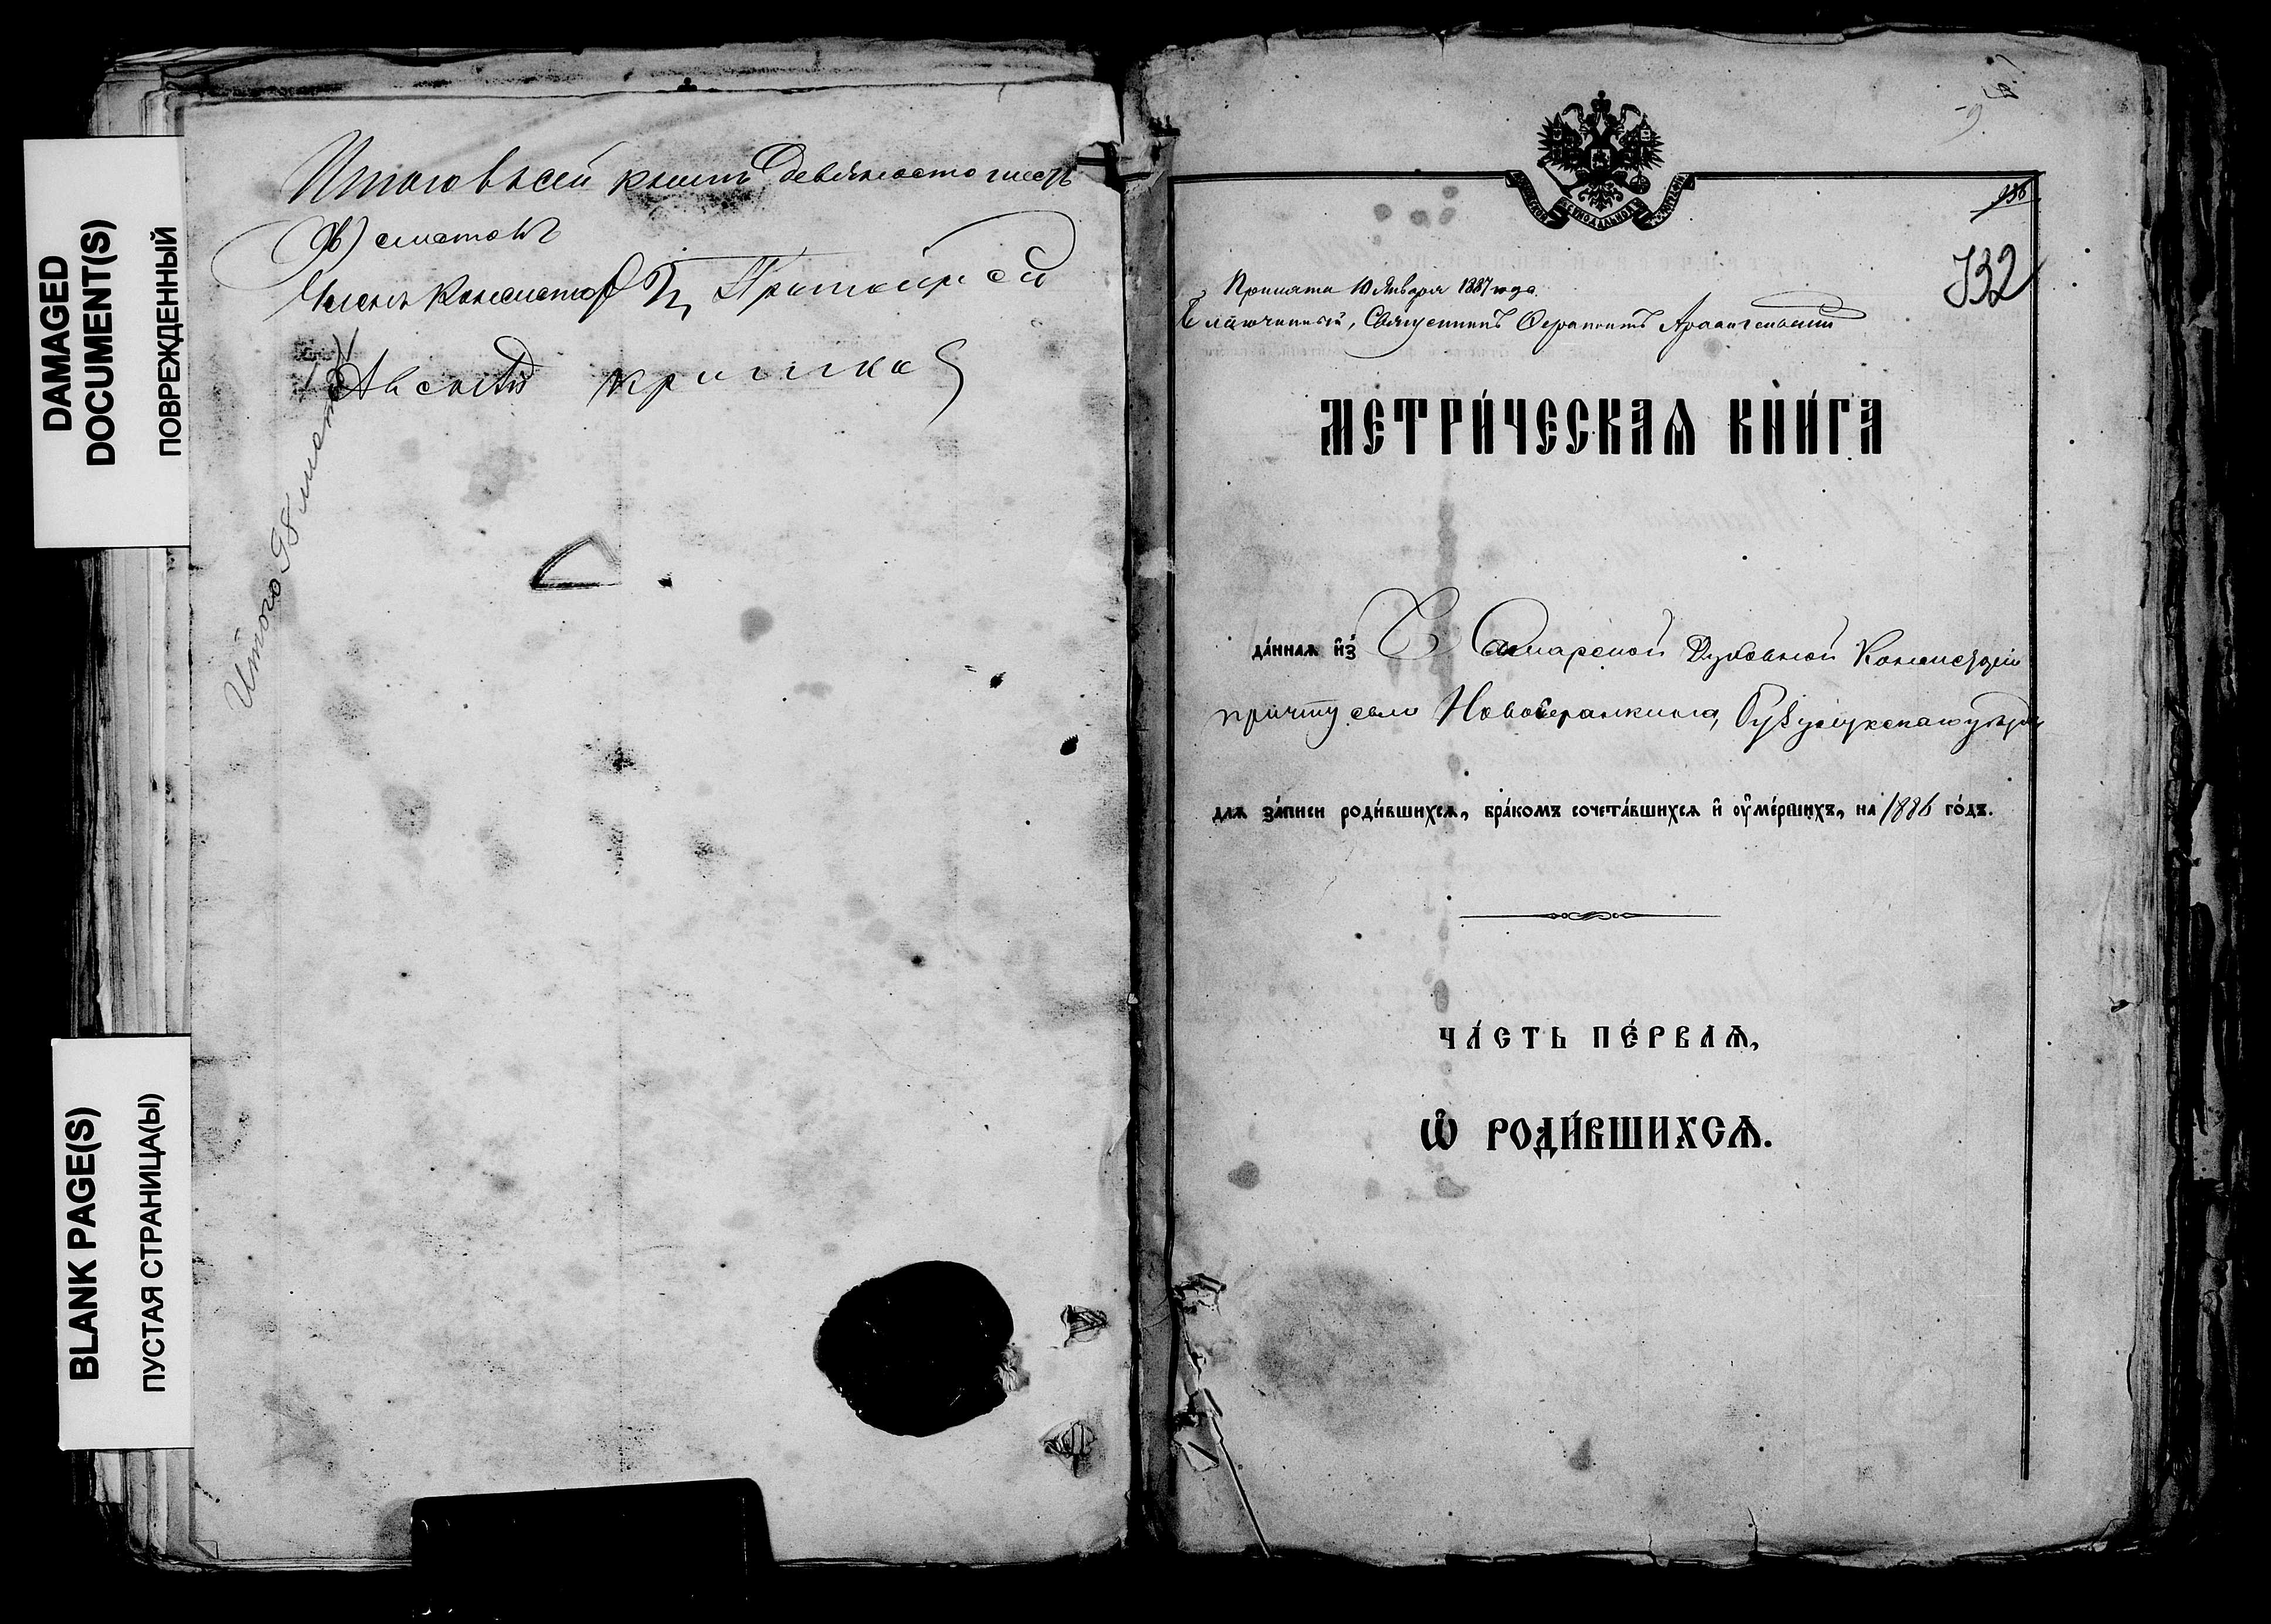 DAMAGED
DOCUMENT(S)
ПОВРЕЖДЕННЫЙ
BLANK PAGE(S)
ПУСТАЯ СТРАНИЦА(Ы)
Итого в сей книгѣ девяносто шесть
(96) листовъ
Членъ Консисторіи
Итого 98 листовъ
132
Принята 10 Января 1887 года.
Благочинный, Священникъ Ѳерапонтъ Архангельскій
МЕТРИ́ЧЕСКАѦ КНИ́ГА
да́ннаѧ и҆з̾ Самарской Духовной Консисторіи
причту села Бузулукскаго уѣзда
для за́писи роди́вшихсѧ, бра́комъ сочета́вшихсѧ и҆ ᲂу҆ме́ршихъ, на 1886 го́дъ.
ЧА́СТЬ ПЕ́РВАѦ,
Ѡ҆ РОДИ́ВШИХСѦ.